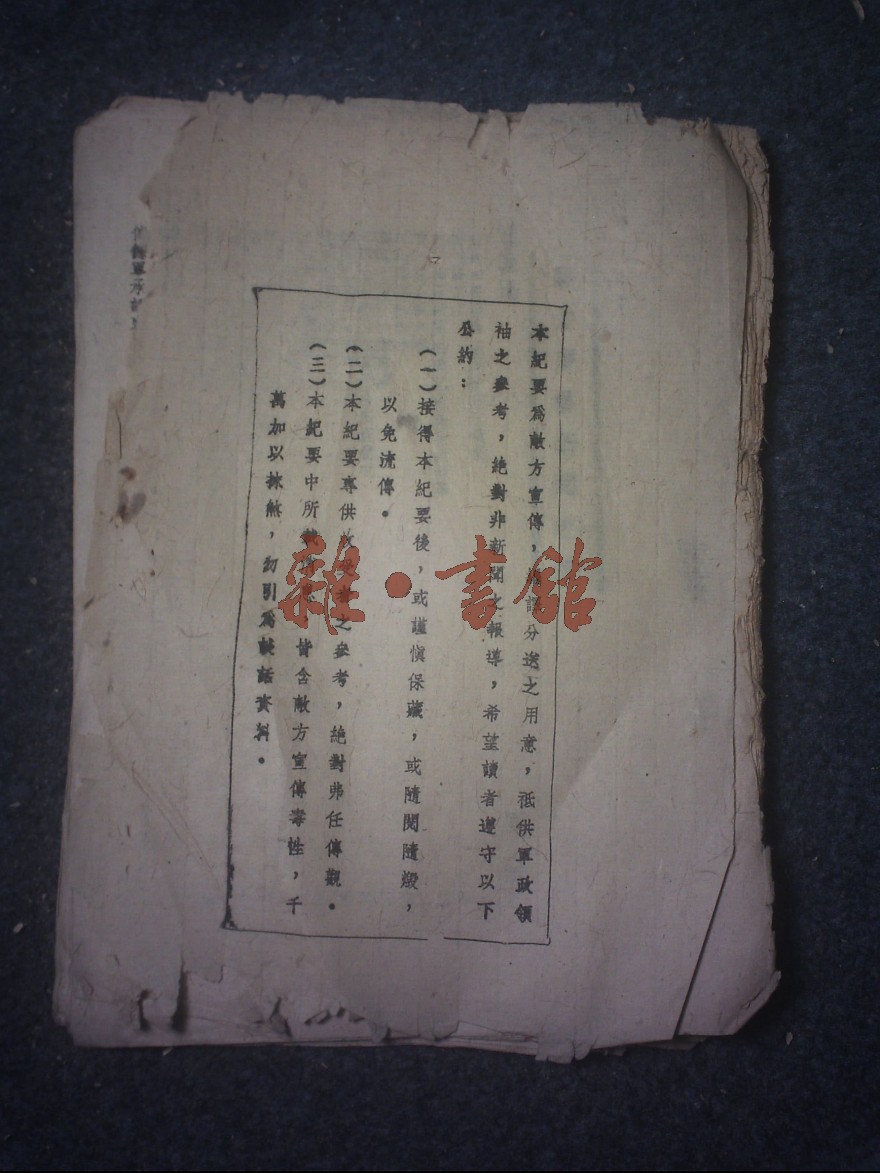 本紀要爲敵方宣傳，譯分送之用意，祇供軍政領
袖之參考，絕對非新聞之報導，希望讀者遵守以下
公約：
（一）接得本紀要後，或謹愼保藏，或隨閱隨燬，
以免流傳。
（二）本紀要專供之參考，絕對弗任傳觀。
（三）本紀要中所皆含敵方宣傳毒性，千
萬加以抹煞，勿引爲談話資料。
雜·書館